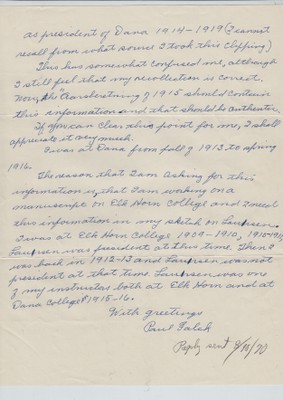 as president of Dana 1914-1919 (I cannot
recall from what source I took this clipping)
This has somewhat confused me, although
I still feel that my recollection is correct.
Now, the "Aarsberetning" of 1915 should contain
this information and that should be authentic.
If you can clear this point for me, I shall
appreciate it very much.
I was at Dana from fall of 1913 to spring
1916.
The reason that I am asking for this
information is, that I am working on a
manuscript on Elk Horn College and I need
this information in my sketch on Laursen.
I was at Elk Horn College 1909-1910, 1910-1911,
Laursen was president at this time. Then I
was back in 1912-13 and Laursen was not
president at that time. Laursen was one
of my instructors both at Elk Horn and at
Dana College 1915-16.
With greetings
Paul
Reply sent 9/10/70